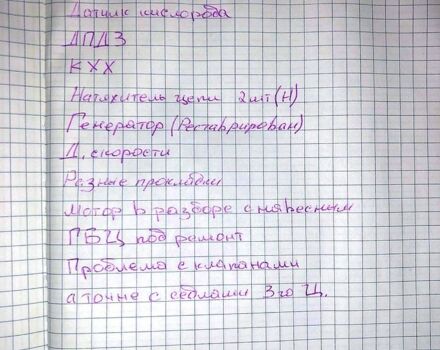 Датчик кислорода
ДПДЗ
КХХ
Натяжитель цепи 2шт(Н)
Генератор (Реставрирован)
Д. скорости
Разные прокладки
Мотор в разборе с навесным
ГБЦ под ремонт
Проблема с клапанами
а точне с седлами 3го Ц.